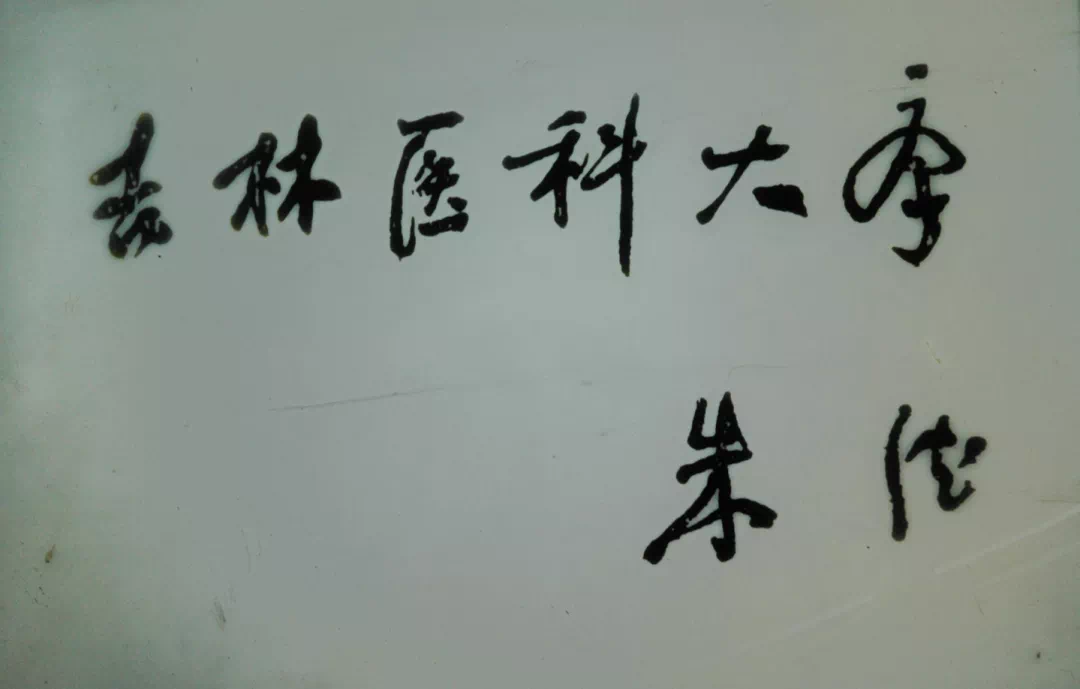 吉林医科大学
朱德